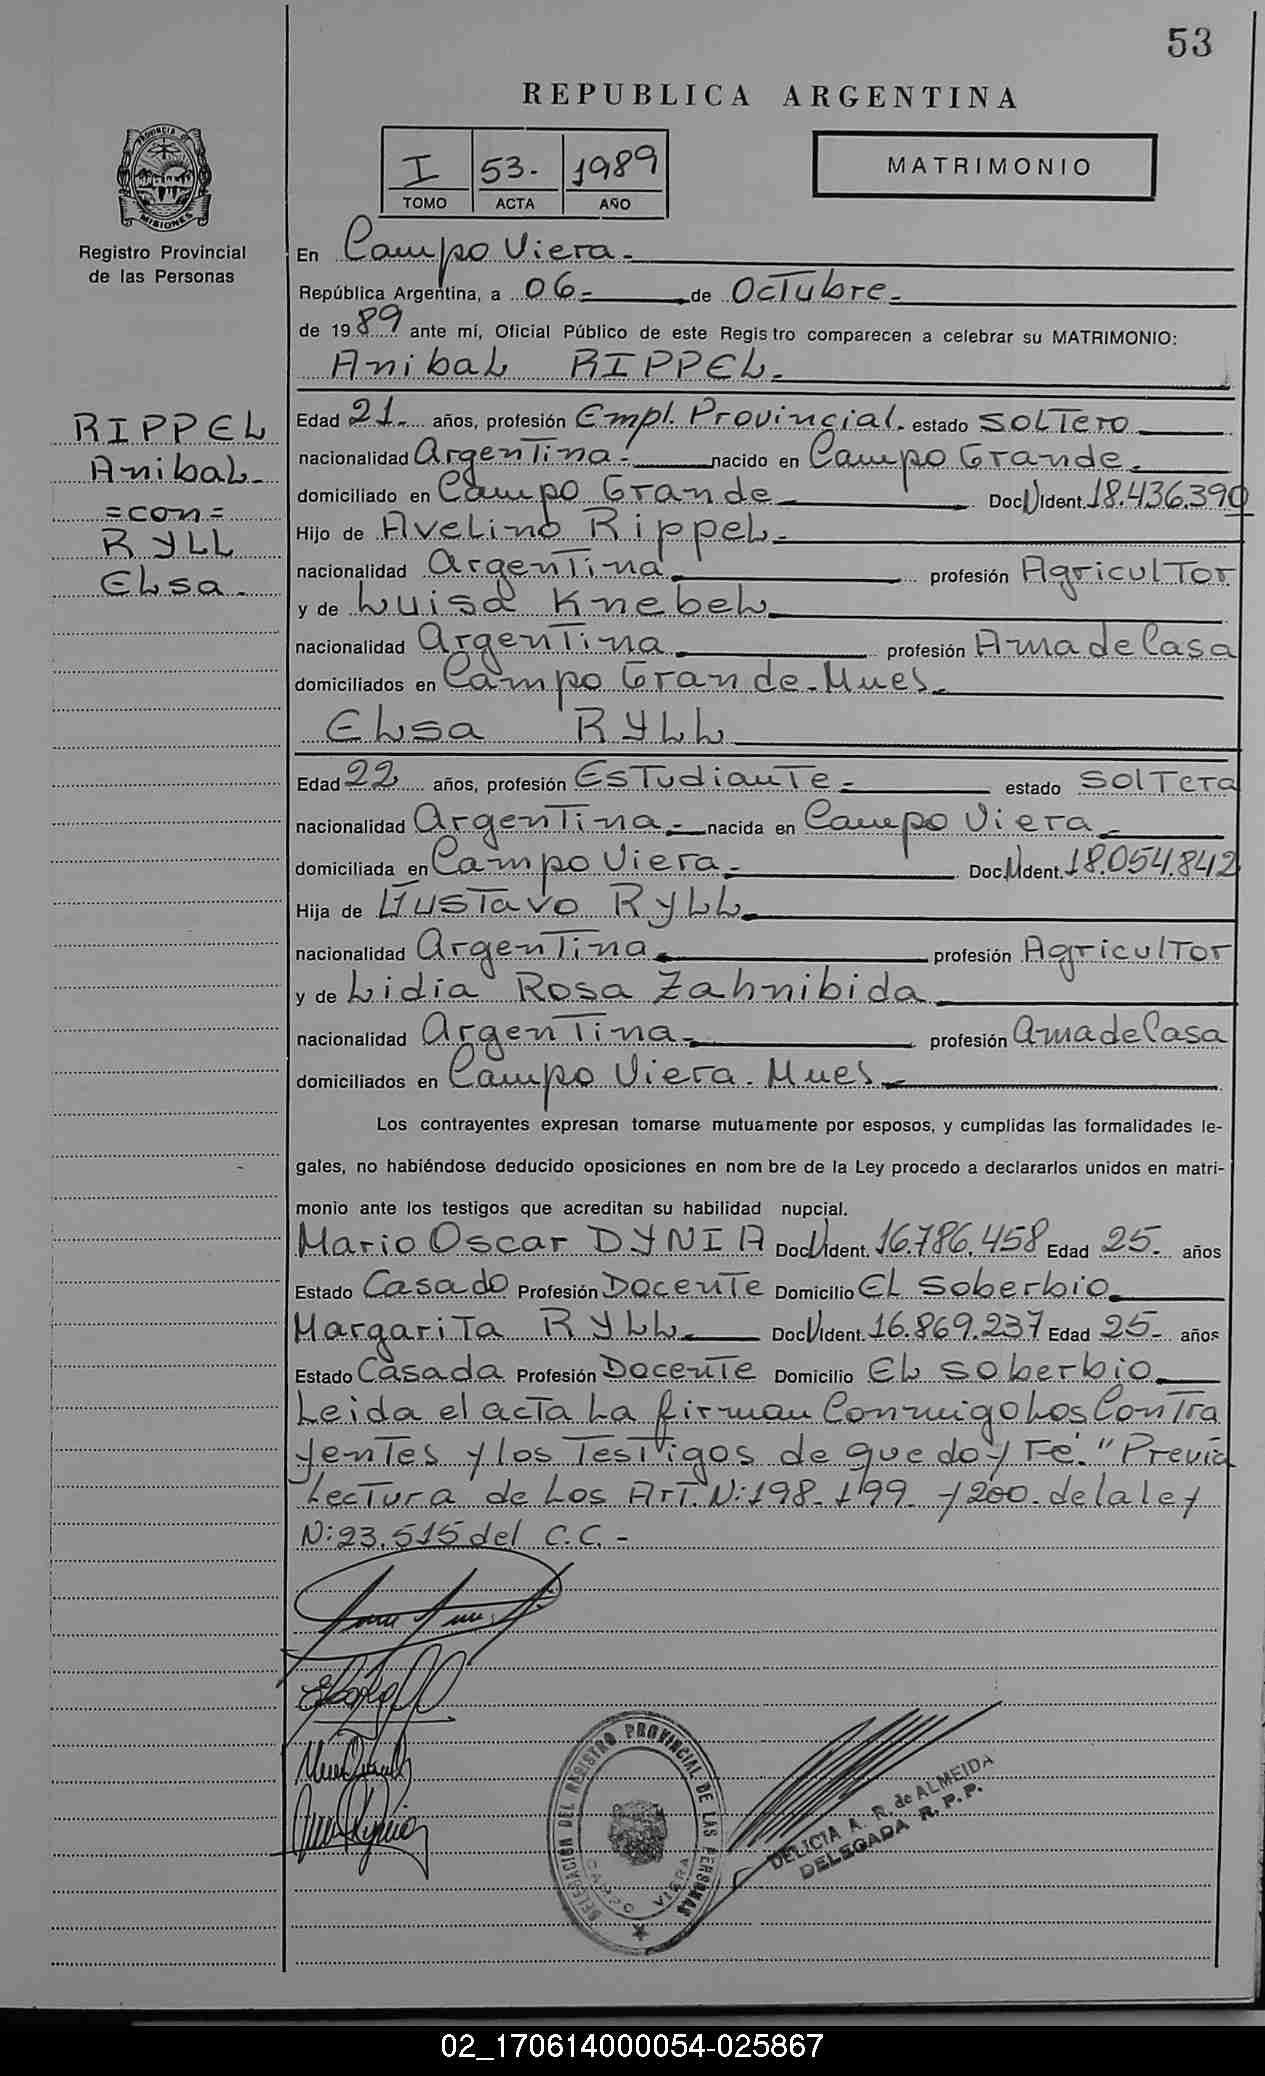 53
REPUBLICA ARGENTINA
PROVINCIA DE
MISIONES
I 53.- 1989
TOMO ACTA AÑO
MATRIMONIO
Registro Provincial
de las Personas
En Campo Viera.-
República Argentina, a 06.- de Octubre.-
de 1989 ante mí, Oficial Público de este Registro comparecen a celebrar su MATRIMONIO:
Anibal RIPPEL.-
RIPPEL
Anibal.-
=con=
RYLL
Elsa.-
Edad 21.- años, profesión Empl. Provincial. estado Soltero
nacionalidad Argentina.- nacido en Campo Grande.-
domiciliado en Campo Grande Doc U Ident. 18.436.390
Hijo de Avelino Rippel.-
nacionalidad Argentina profesión Agricultor
y de Luisa Knebel
nacionalidad Argentina profesión Ama de Casa
domiciliados en Campo Grande.- Mnes.-
Elsa RYLL
Edad 22 años, profesión Estudiante.- estado Soltera
nacionalidad Argentina.- nacida en Campo Viera.-
domiciliada en Campo Viera.- Doc. U Ident. 18.054.842
Hija de Gustavo Ryll
nacionalidad Argentina profesión Agricultor
y de Lidia Rosa Zahnibida
nacionalidad Argentina.- profesión Ama de Casa
domiciliados en Campo Viera. Mnes.-
Los contrayentes expresan tomarse mutuamente por esposos, y cumplidas las formalidades le-
gales, no habiéndose deducido oposiciones en nombre de la Ley procedo a declararlos unidos en matri-
monio ante los testigos que acreditan su habilidad nupcial.
Mario Oscar DYNIA Doc U Ident. 16.786.458 Edad 25.- años
Estado Casado Profesión Docente Domicilio El Soberbio
Margarita RYLL Doc U Ident. 16.869.237 Edad 25.- años
Estado Casada Profesión Docente Domicilio El Soberbio
Leida el acta la firman Conmigo Los Contra
yentes y los Testigos de que doy Fé." Previa
Lectura de Los Art. N:198.199. y 200. de la ley
N:23.515 del C.C.-
DELEGACIÓN DEL REGISTRO PROVINCIAL DE LAS PERSONAS
CAMPO VIERA
DELICIA A. R. de ALMEIDA
DELEGADA R. P. P.
02_170614000054-025867